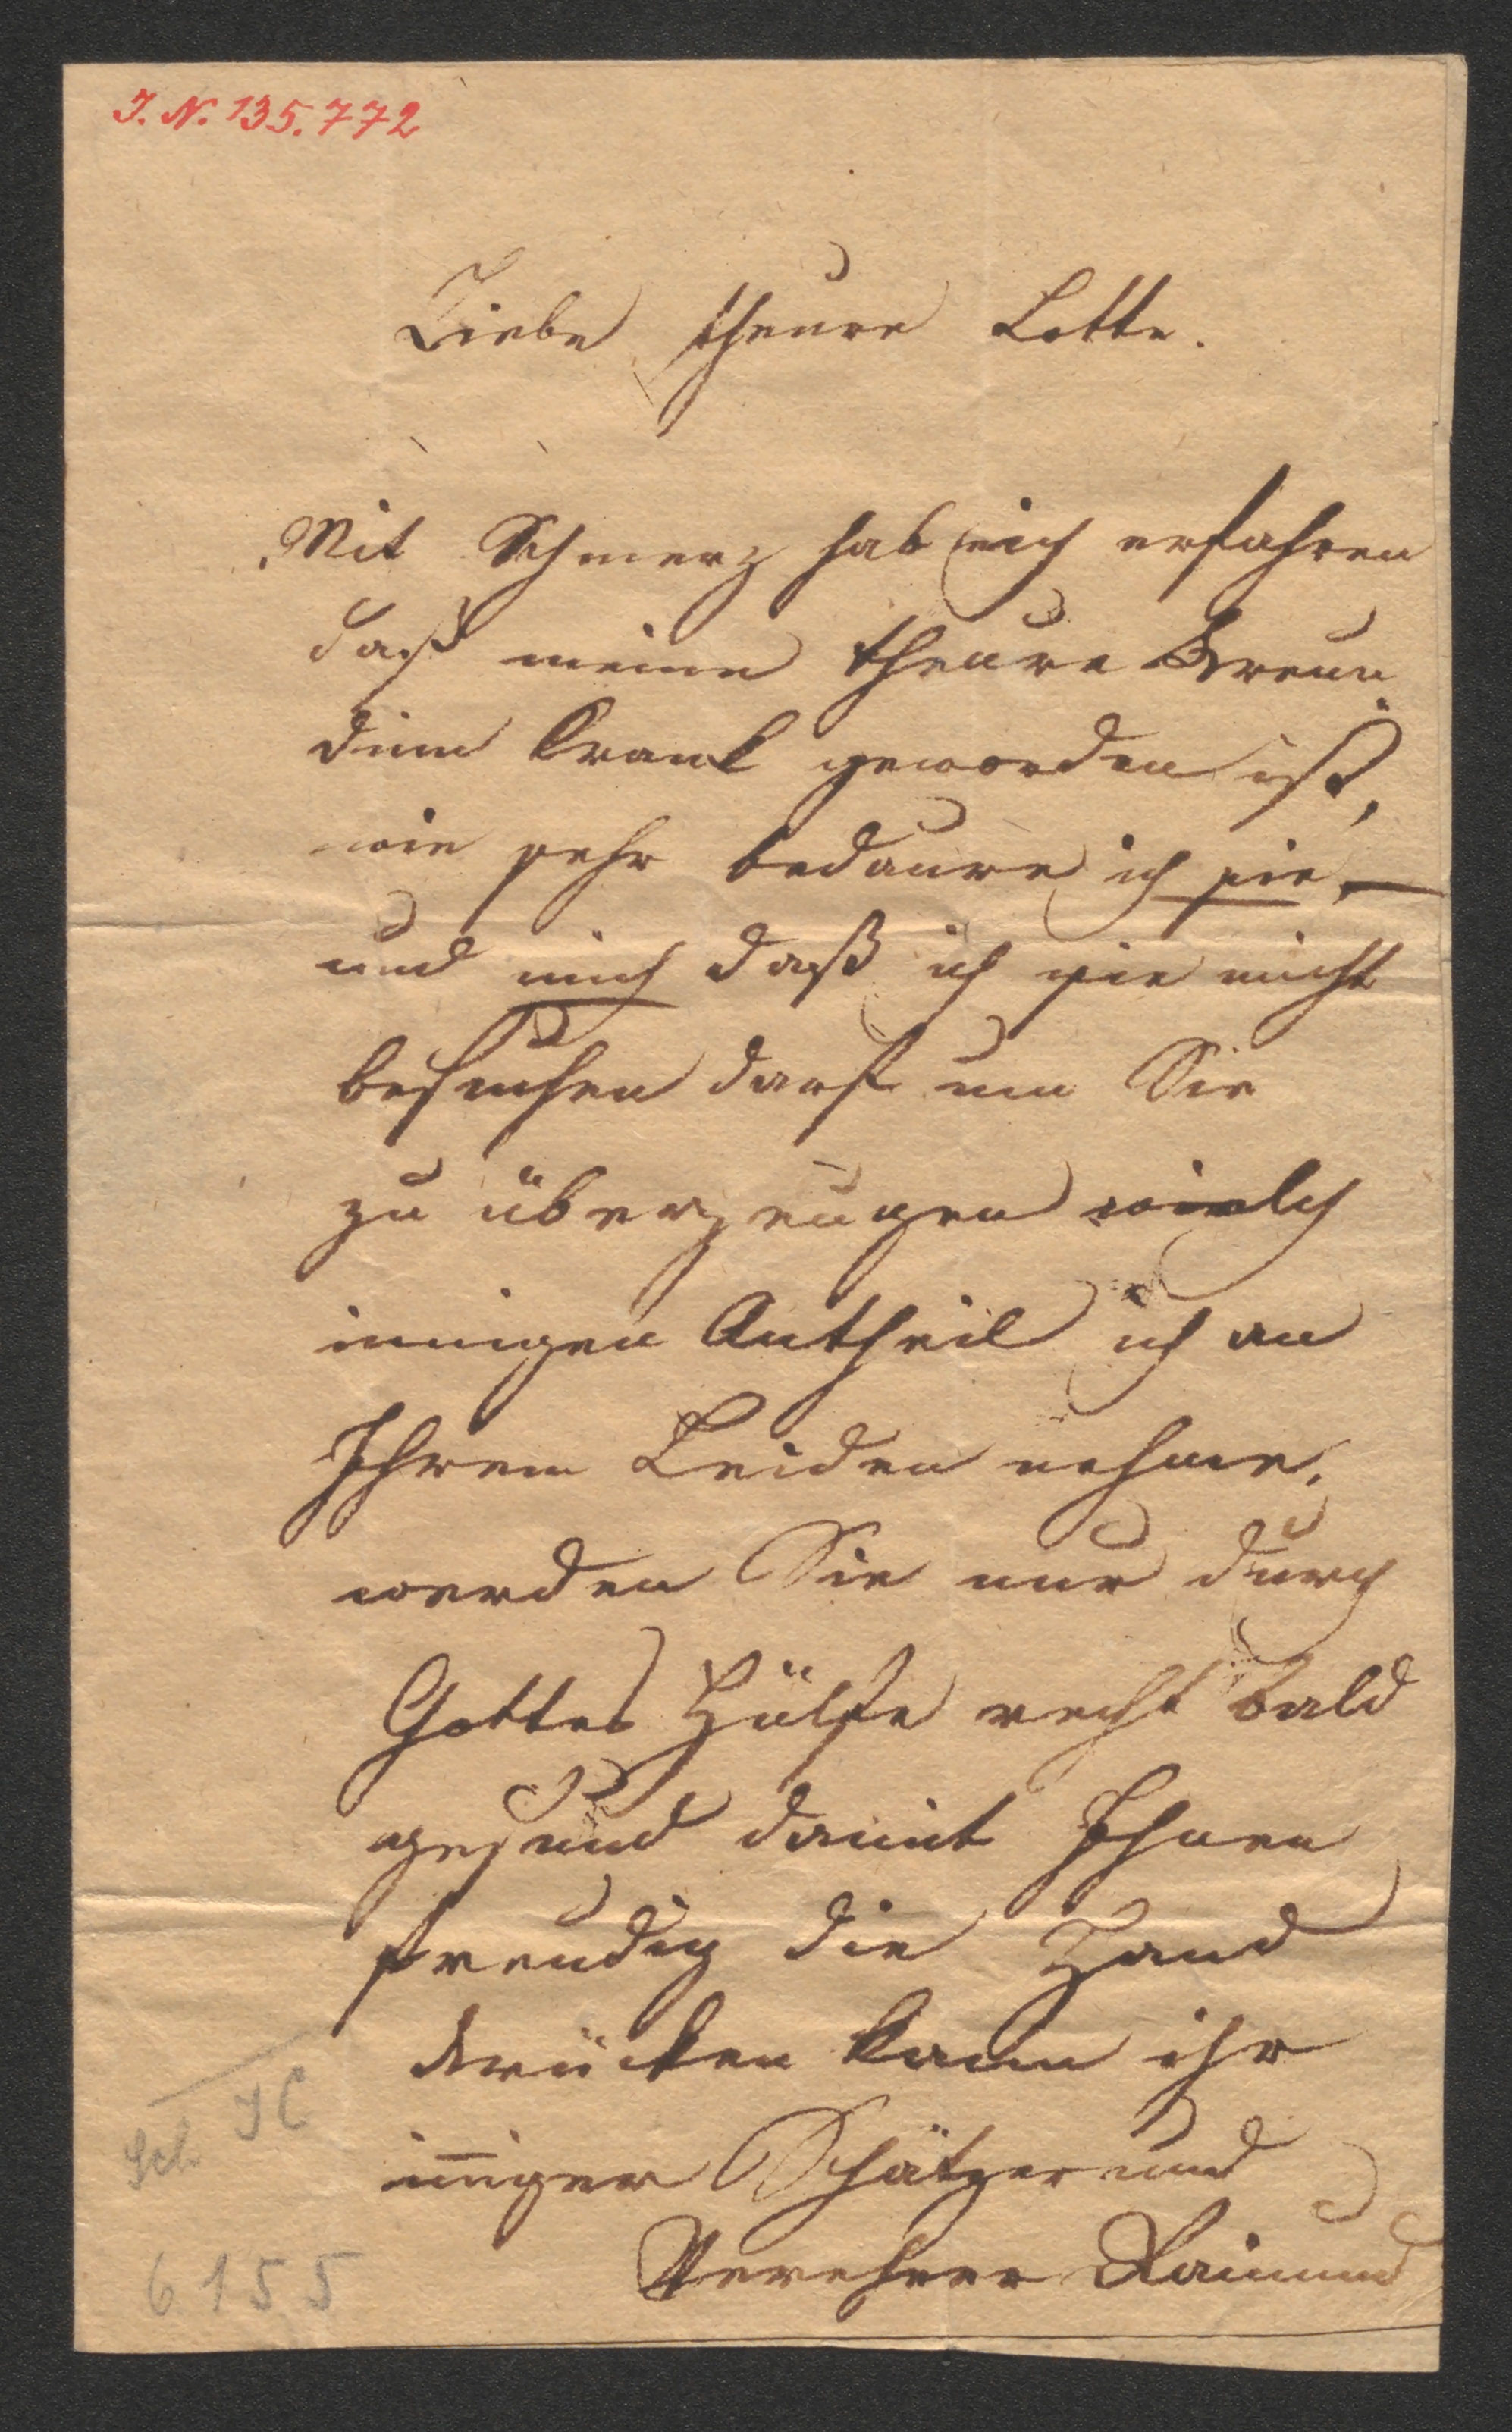 J. N. 135.772
Liebe theure Lotte.
Mit Schmerz hab ich erfahren
daß meine theure Freun
dinn krank geworden ist,
wie sehr bedaure ich sie,—
und mich daß ich sie nicht
besuchen darf um Sie
zu überzeugen welch
innigen Antheil ich an
Ihrem Leiden nehme.
werden Sie nur durch
Gottes Hülfe recht bald
gesund damit Ihnen
freudig die Hand
drücken kann ihr
iniger Schätzer und
Verehrer Raimund
6155